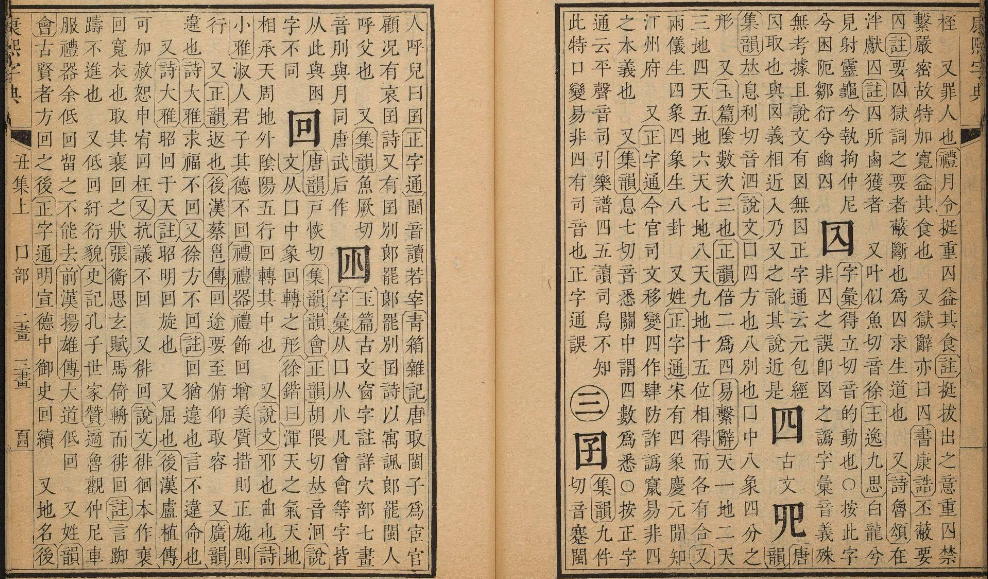 康熙字典
桎　又罪人也禮月令挺重囚益其食註挺拔出之意重囚禁
繫嚴密故特加寬益其食也　又獄辭亦曰囚書康誥丕蔽要
囚註要囚獄詞之要者蔽斷也爲囚求生道也　又詩魯頌在
泮獻囚註囚所鹵獲者　又叶似魚切音徐王逸九思白龍兮
見射靈龜兮執拘仲尼　字彙得立切音的動也○按此字
兮困阨鄒衍兮幽囚　非囚之誤卽囡之譌字彙音義殊
無考據且說文有囡無正字通云元包經
囚取也與囡義相近入乃又之訛其說近是　四　古文𦉭　唐韻
集韻𠀤息利切音泗說文囗四方也八別也囗中八象四分之
形　又玉篇陰數次三也正韻倍二爲四易繫辭天一地二天
三地四天五地六天七地八天九地十五位相得而各有合又
兩儀生四象四象生八卦　又姓正字通宋有四象慶元間知
汀州府　又正字通今官司文移變四作肆防詐譌竄易非四
之本義也　又集韻息七切音悉關中謂四數爲悉○按正字
通云平聲音司引樂譜四五讀司烏不知
此特口變易非四有司音也正字通誤　三　囝　集韻九件切音蹇閩
人呼兒曰囝正字通閩音讀若宰靑箱雜記唐取閩子爲宦官
顧況有哀囝詩又有囝別郞罷郞罷別囝詩以寓諷郞罷閩人
呼父也　又集韻魚厥切　玉篇古文窗字註詳穴部七畫
音刖與月同唐武后作　字彙从口从小凡曾會等字皆
从此與囱　唐韻戶恢切集韻韻會正韻胡隈切𠀤音洄說
字不同　回　文从囗中象回轉之形徐鍇曰渾天之氣天地
相承天周地外陰陽五行回轉其中也　又說文邪也曲也詩
小雅淑人君子其德不回禮禮器禮飾回增美質措則正施則
行　又正韻返也後漢蔡邕傳回途要至俯仰取容　又廣韻
違也詩大雅求福不回又徐方不回註回猶違也言不違命也
又詩大雅昭回于天註昭明回旋也　又屈也後漢盧植傳
可加赦恕申宥回枉又抗議不回　又徘回說文徘徊本作裵
回寬衣也取其裵回之狀張衡思玄賦馬倚輈而徘回註言踟
躊不進也　又低回紆衍貌史記孔子世家贊適魯觀仲尼車
服禮器余低回留之不能去前漢揚雄傳大道低回　又姓韻
會古賢者方回之後正字通明宣德中御史回續　又地名後
康熙字典　丑集上　囗部　二畫　三畫